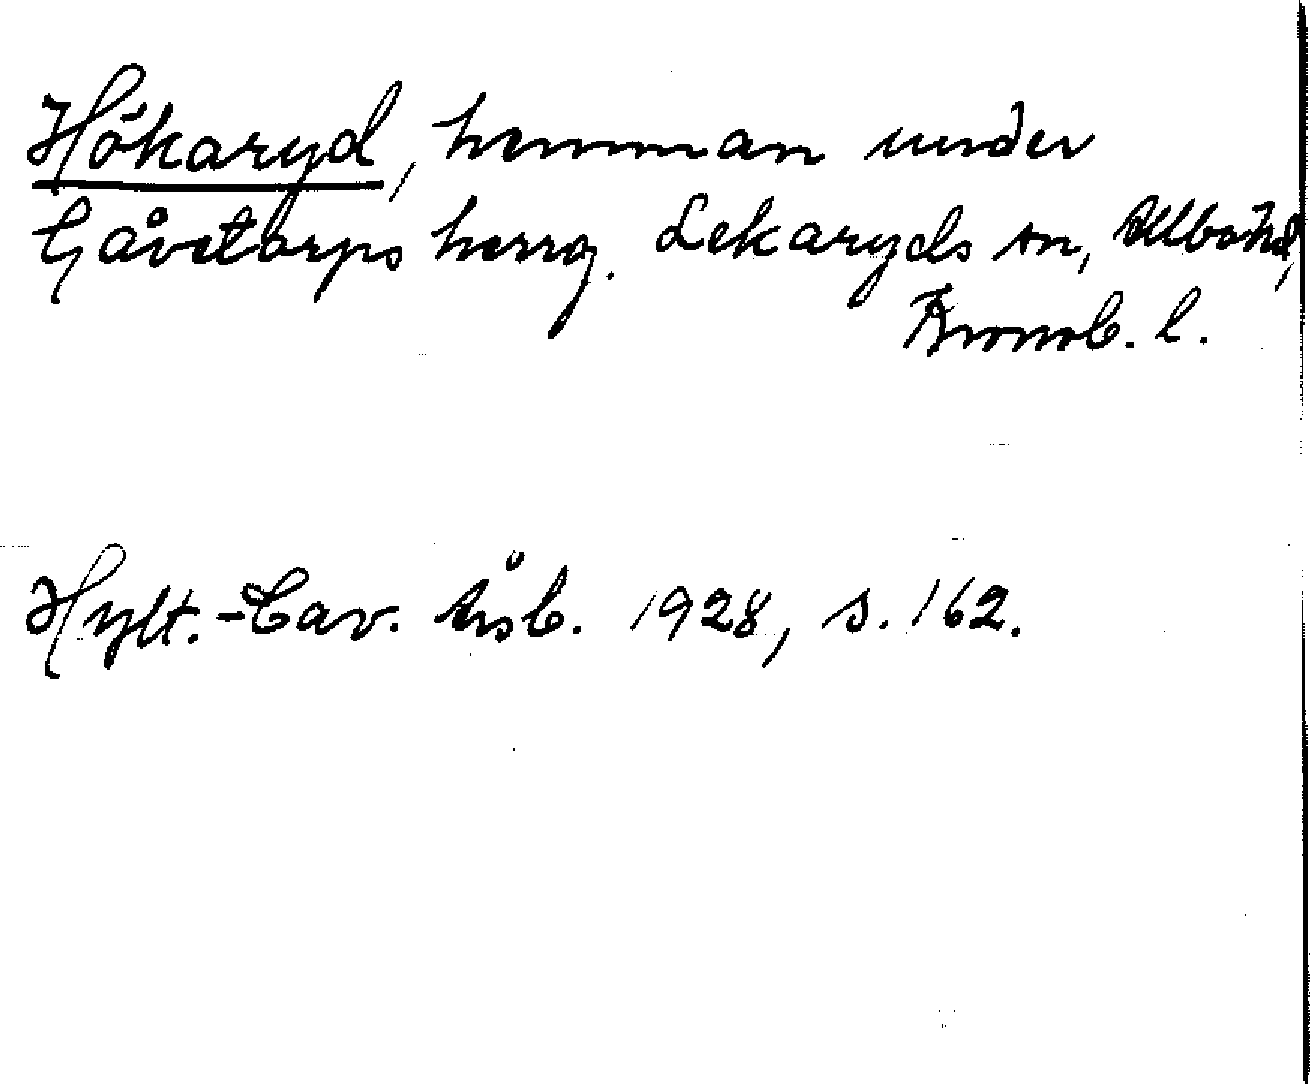 Hökaryd, hemman under
Gåvetorps herrg. Lekaryds sn, Allbo hd,
Kronob. l.
Hylt.-Cav. Årsb. 1928, s. 162.